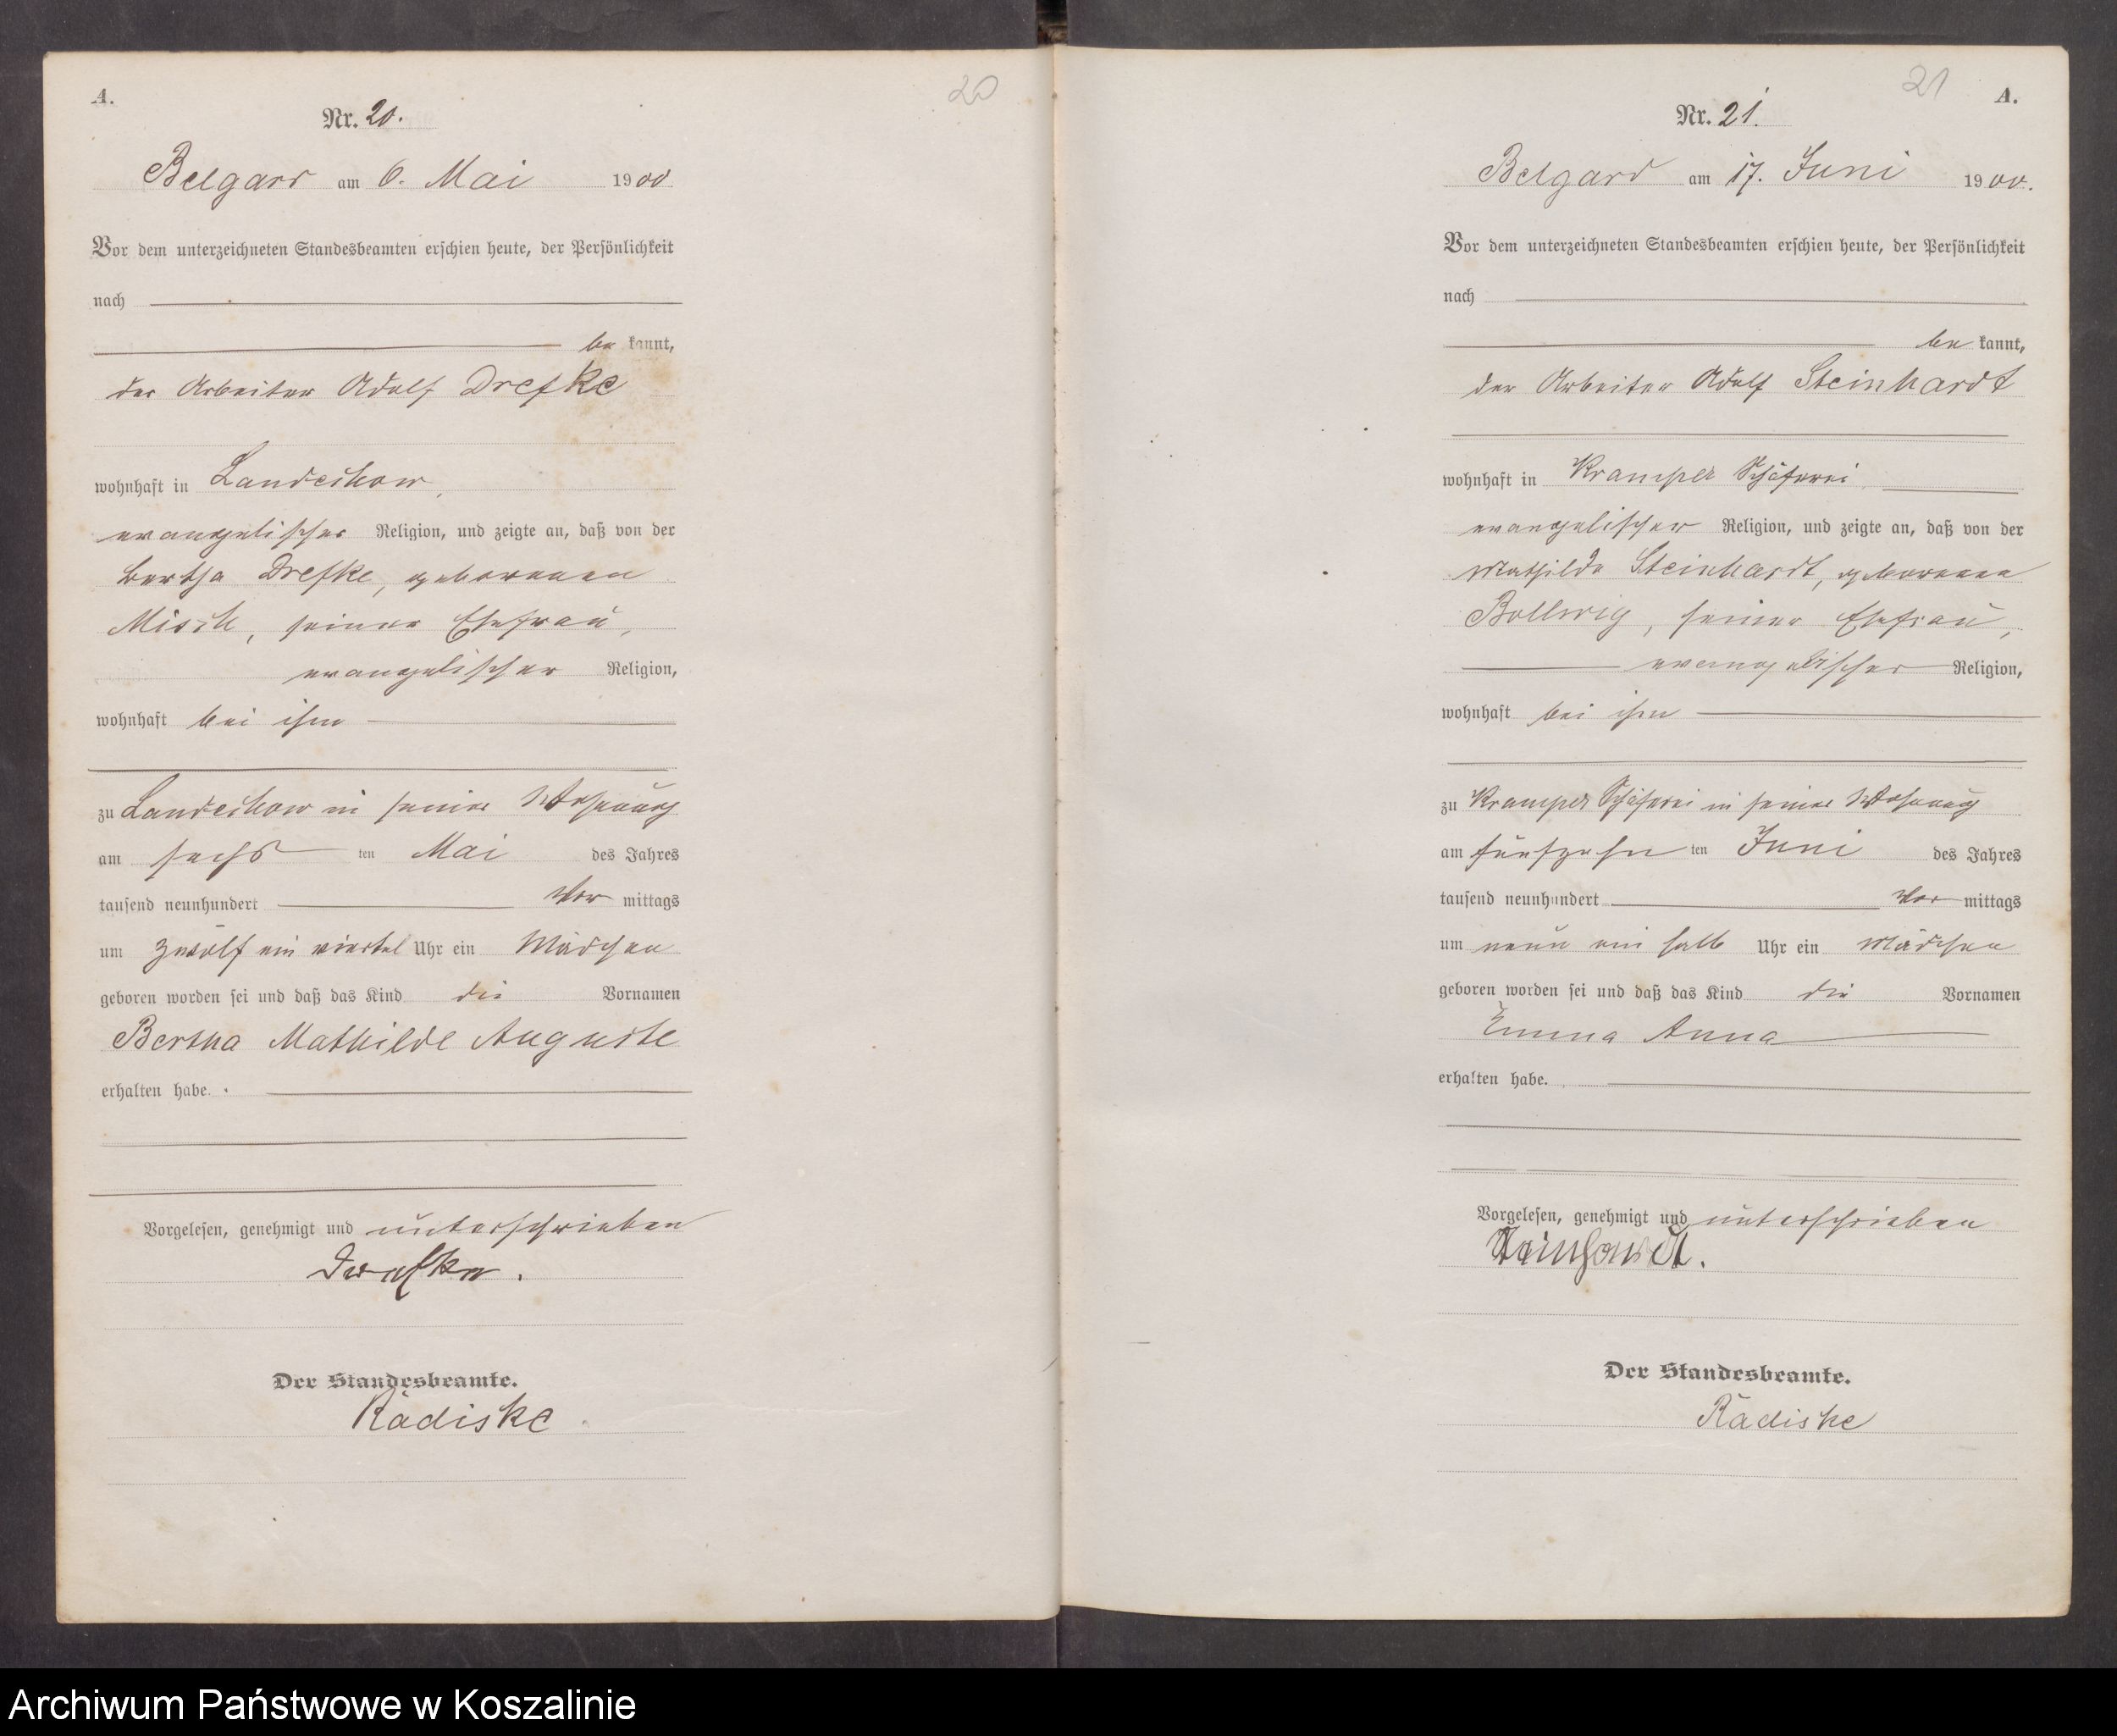 A.
20
Nr. 20.
Belgard am 6. Mai 1900
Vor dem unterzeichneten Standesbeamten erschien heute, der Persönlichkeit
nach
be kannt,
der Arbeiter Adolf Drefke
wohnhaft in Landechow,
evangelischer Religion, und zeigte an, daß von der
Bertha Drefke, geborenen
Misch, seiner Ehefrau,
evangelischer Religion,
wohnhaft bei ihm
zu Landechow in seiner Wohnung
am sechs ten Mai des Jahres
tausend neunhundert Vor mittags
um zwölf ein viertel Uhr ein Mädchen
geboren worden sei und daß das Kind die Vornamen
Bertha Mathilde Auguste
erhalten habe.
Vorgelesen, genehmigt und unterschrieben
Drefke.
Der Standesbeamte.
Rädiske
21
A.
Nr. 21.
Belgard am 17. Juni 1900.
Vor dem unterzeichneten Standesbeamten erschien heute, der Persönlichkeit
nach
be kannt,
der Arbeiter Adolf Steinhardt
wohnhaft in Kramper Schäferei
evangelischer Religion, und zeigte an, daß von der
Mathilde Steinhardt, geborenen
Bollwig, seiner Ehefrau,
evangelischer Religion,
wohnhaft bei ihm
zu Kramper Schäferei in seiner Wohnung
am fünfzehn ten Juni des Jahres
tausend neunhundert Vor mittags
um neun ein halb Uhr ein Mädchen
geboren worden sei und daß das Kind die Vornamen
Emma Anna
erhalten habe.
Vorgelesen, genehmigt und unterschrieben
Steinhardt.
Der Standesbeamte.
Rädiske
Archiwum Państwowe w Koszalinie